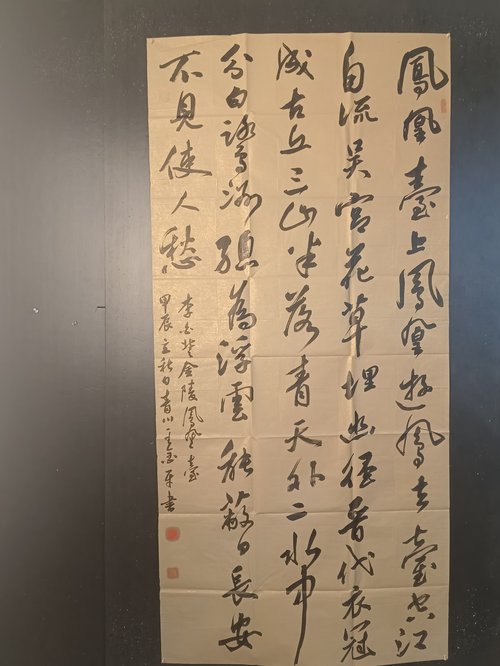 鳳凰臺上鳳凰遊鳳去臺空江
自流吳宮花草埋幽徑晉代衣冠
成古丘三山半落青天外二水中
分白鷺洲總為浮雲能蔽日長安
不見使人愁
李白登金陵鳳凰臺
甲辰立秋日青川王平書